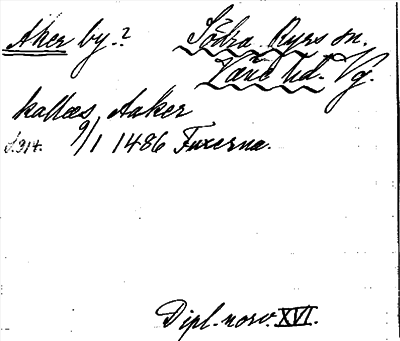 Åker by.? Södra Ryrs sn.
Väne hd. Vg.
kallas Aaker
S.314. 9/1 1486 Fuxerna.
Dipl. norv. XVI.